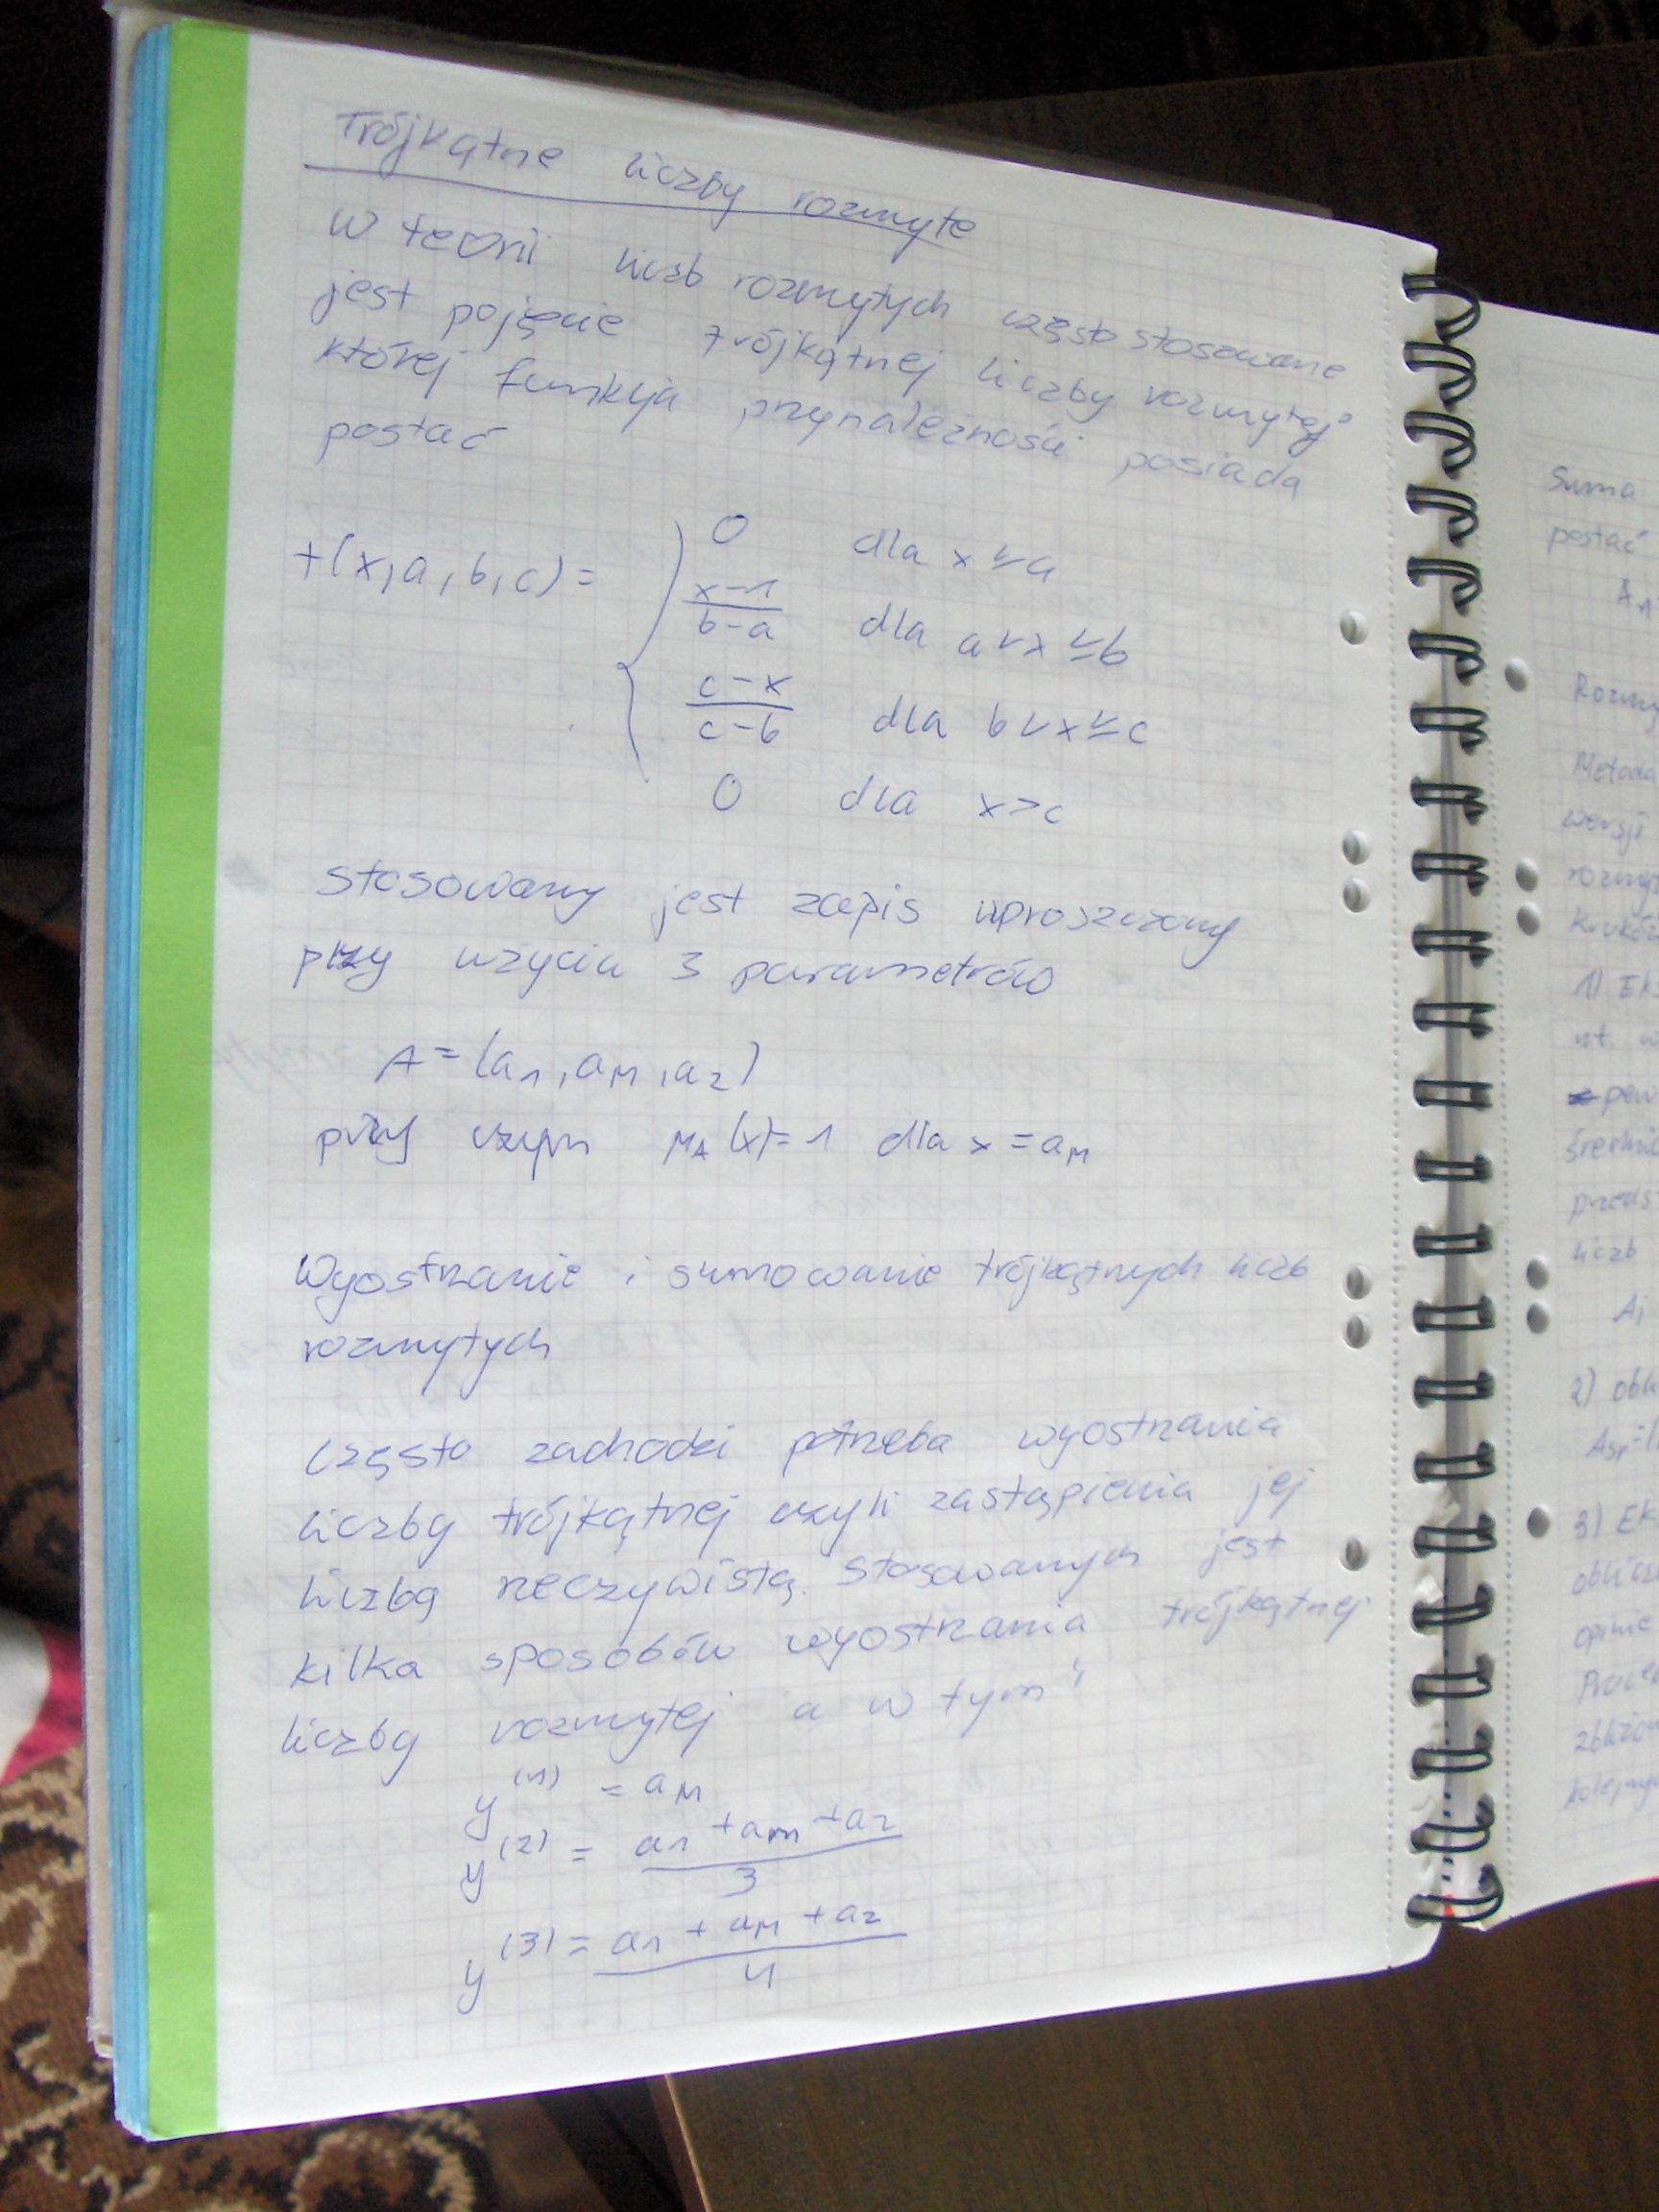 Trójkątne liczby rozmyte
W teorii liczb rozmytych często stosowane
jest pojęcie trójkątnej liczby rozmytej
której funkcja przynależności posiada
postać
t(x,a,b,c) =
0 dla x ≤ a
x-1 / b-a dla a < x ≤ b
c-x / c-b dla b < x ≤ c
0 dla x > c
Stosowany jest zapis uproszczony
przy użyciu 3 parametrów
A = (a1, aM, a2)
przy czym μA(x) = 1 dla x = aM
Wyostrzanie i sumowanie trójkątnych liczb
rozmytych
Często zachodzi potrzeba wyostrzania
liczby trójkątnej czyli zastąpienia jej
liczbą rzeczywistą. Stosowanych jest
kilka sposobów wyostrzania trójkątnej
liczby rozmytej a w tym:
y(1) = aM
y(2) = a1 + am + a2 / 3
y(3) = a1 + aM + a2 / 4
Suma
postać
Metoda
wersji
1)
liczb
Ai
2)
3)
opinie